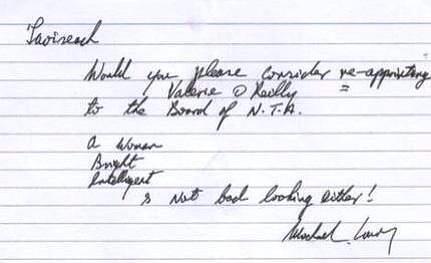 Taoiseach
Would you please consider re-appointing
Valerie O Reilly
to the Board of N.T.A.
a woman
Bright
Intelligent
& Not bad looking either!
Michael Lowry